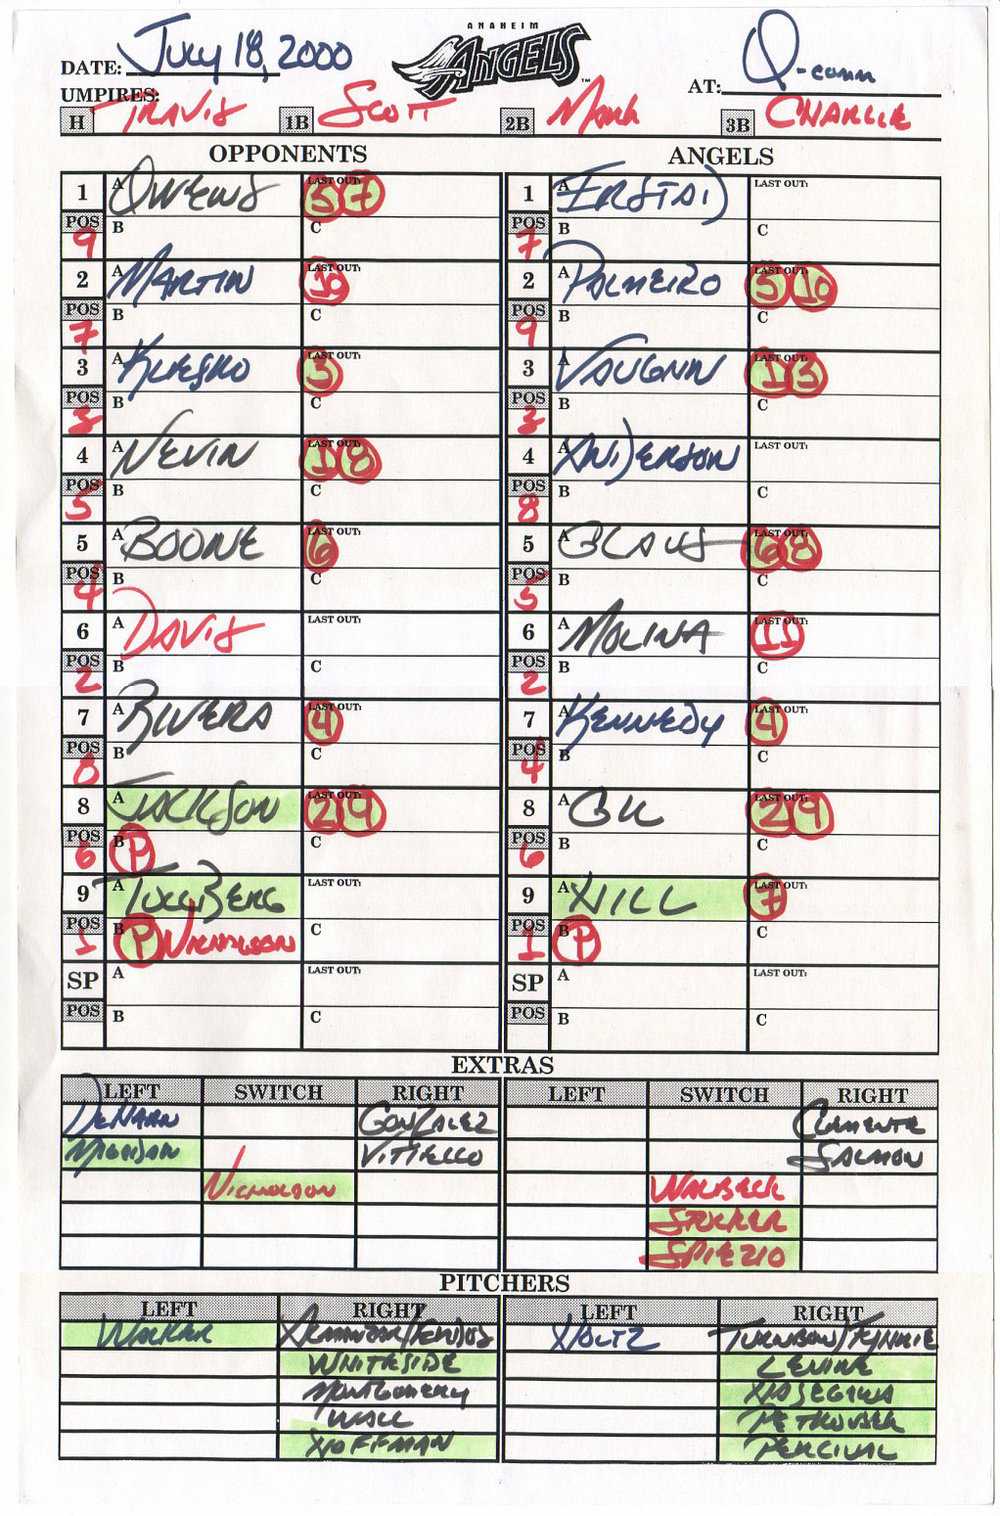 ANAHEIM
ANGELS
DATE: July 18, 2000
AT: Q-comm
UMPIRES:
H TRAVIS 1B SCOTT 2B MARK 3B CHARLIE
OPPONENTS ANGELS
1 A OWENS LAST OUT: 5 7
POS 9 B C
2 A MARTIN LAST OUT: 10
POS 7 B C
3 A KLESKO LAST OUT: 3
POS 3 B C
4 A NEVIN LAST OUT: 1 8
POS 5 B C
5 A BOONE LAST OUT: 6
POS 4 B C
6 A DAVIS LAST OUT:
POS 2 B C
7 A RIVERA LAST OUT: 4
POS 8 B C
8 A JACKSON LAST OUT: 2 9
POS 6 B P C
9 A TOLLBERG LAST OUT:
POS 1 B P NICHOLSON C
SP A LAST OUT:
POS B C
1 A ERSTAD LAST OUT:
POS 7 B C
2 A PALMEIRO LAST OUT: 5 10
POS 9 B C
3 A VAUGHN LAST OUT: 1 3
POS 3 B C
4 A ANDERSON LAST OUT:
POS 8 B C
5 A GLAUS LAST OUT: 6 8
POS 5 B C
6 A MOLINA LAST OUT: 11
POS 2 B C
7 A KENNEDY LAST OUT: 4
POS 4 B C
8 A GIL LAST OUT: 2 9
POS 6 B C
9 A HILL LAST OUT: 7
POS 1 B P C
SP A LAST OUT:
POS B C
EXTRAS
LEFT SWITCH RIGHT LEFT SWITCH RIGHT
DeHAAN GONZALEZ CLEMENTE
MAGADAN VITIELLO SALMON
NICHOLSON WALBECK
STOCKER
SPIEZIO
PITCHERS
LEFT RIGHT LEFT RIGHT
WALKER ALMANZAR HOLTZ TURNBOW
WHITESIDE LEVINE
MONTGOMERY HASEGAWA
WALL PETKOVSEK
HOFFMAN PERCIVAL